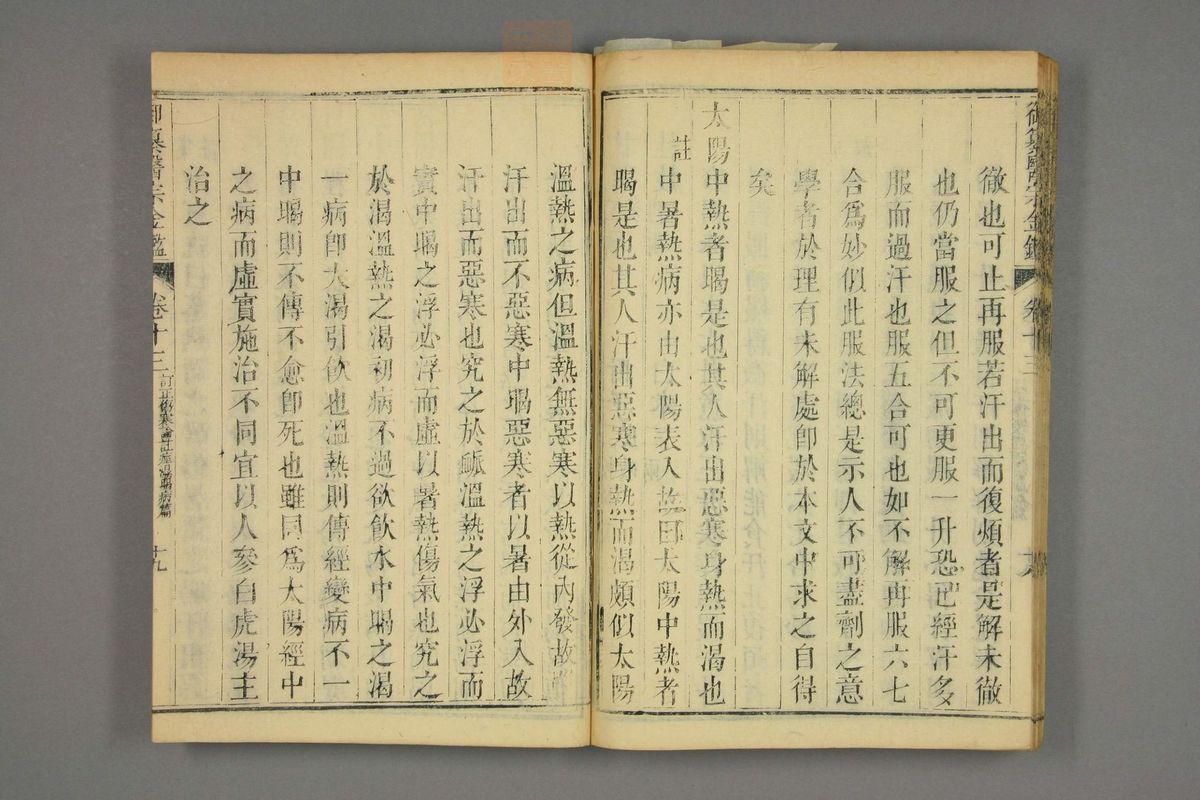 徹也可止再服若汗出而復煩者是解未徹
也仍當服之但不可更服一升恐已經汗多
服而過汗也服五合可也如不解再服六七
合為妙似此服法總是示人不可盡劑之意
學者於理有未解處卽於本文中求之自得
矣
太陽中熱者暍是也其人汗出惡寒身熱而渴也
註 中暑熱病亦由太陽表入故曰太陽中熱者
暍是也其人汗出惡寒身熱而渴頗似太陽
溫熱之病但溫熱無惡寒以熱從內發故
汗出而不惡寒中暍惡寒者以暑由外入故
汗出而惡寒也究之於脈溫熱之浮必浮而
實中暍之浮必浮而虛以暑熱傷氣也究之
於渴溫熱之渴初病不過欲飲水中暍之渴
一病卽大渴引飲也溫熱則傳經變病不一
中暍則不傳不愈卽死也雖同為太陽經中
之病而虛實施治不同宜以人參白虎湯主
治之
御纂醫宗金鑑
卷十三
訂正傷寒論註痙濕暍病篇
十九
御纂醫宗金鑑
卷十三